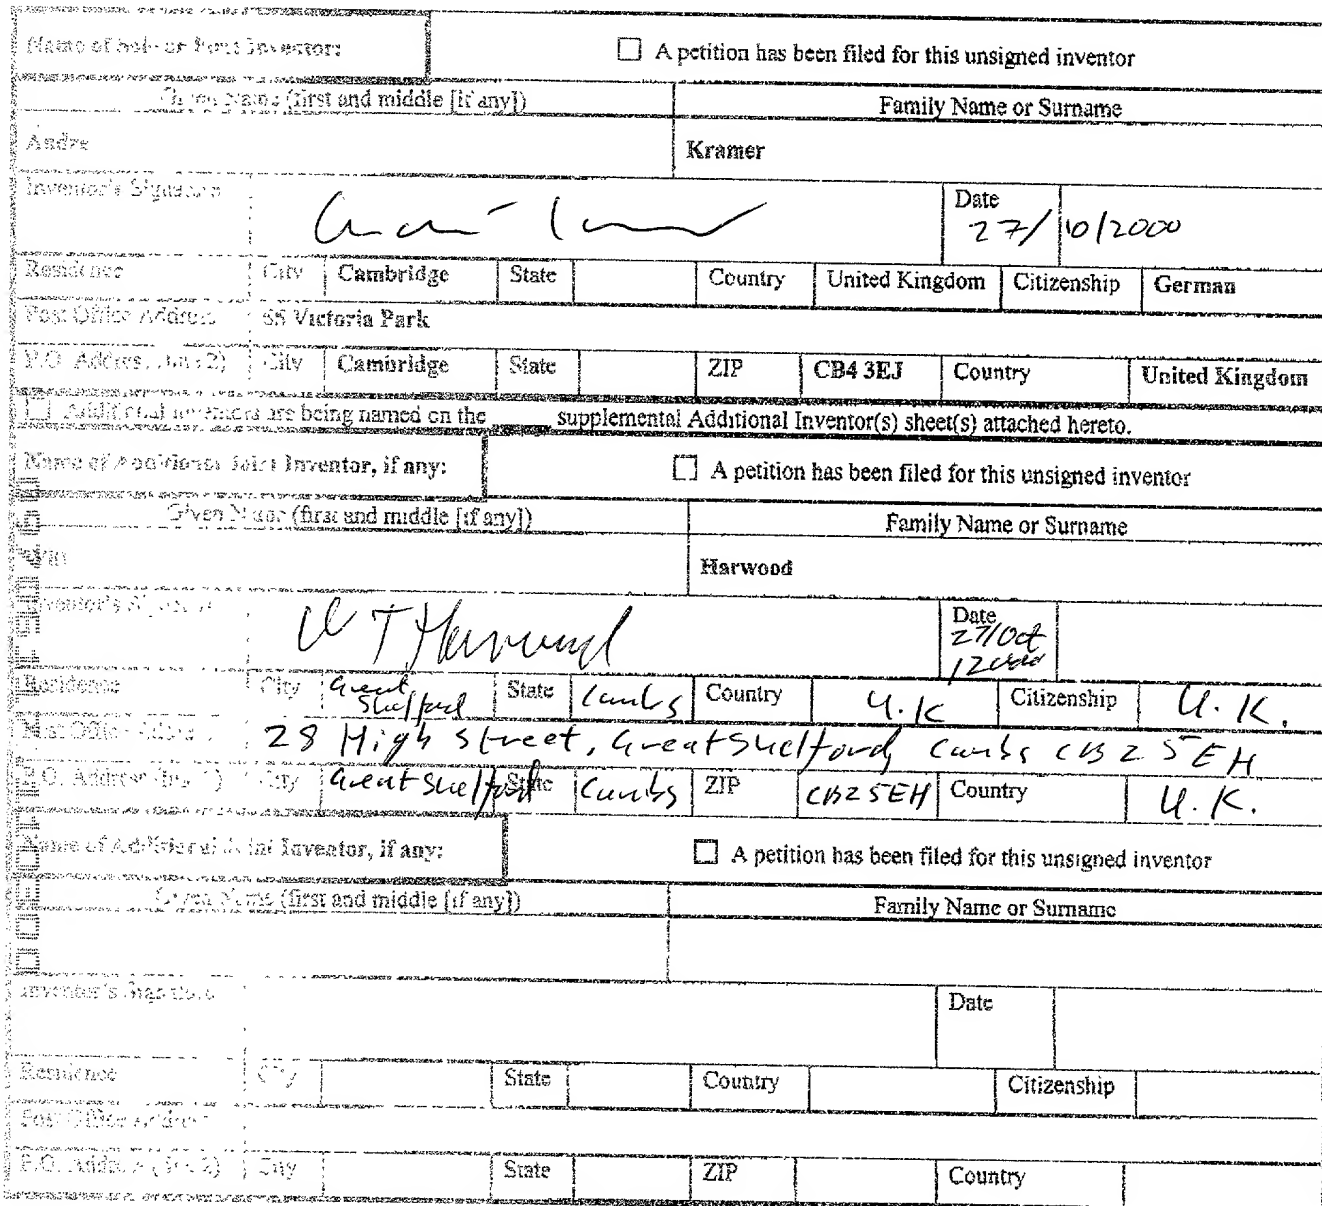 Name of Sole or First Inventor: A petition has been filed for this unsigned inventor
Given Name (first and middle [if any]) Family Name or Surname
Andre Kramer
Inventor's Signature Date 27/10/2000
Residence City Cambridge State Country United Kingdom Citizenship German
Post Office Address Victoria Park
P.O. Address City Cambridge State ZIP CB4 3EJ Country United Kingdom
Additional inventors are being named on the supplemental Additional Inventor(s) sheet(s) attached hereto.
Name of Additional Joint Inventor, if any: A petition has been filed for this unsigned inventor
Given Name (first and middle [if any]) Family Name or Surname
Harwood
Inventor's Signature W T Harwood Date 27/Oct
Residence City Great Shelford State Cambs Country U.K Citizenship U.K.
Post Office Address 28 High Street, Great Shelford, Cambs CB2 5EH
P.O. Address City Great Shelford State Cambs ZIP CB2 5EH Country U.K.
Name of Additional Joint Inventor, if any: A petition has been filed for this unsigned inventor
Given Name (first and middle [if any]) Family Name or Surname
Inventor's Signature Date
Residence City State Country Citizenship
Post Office Address
P.O. Address City State ZIP Country